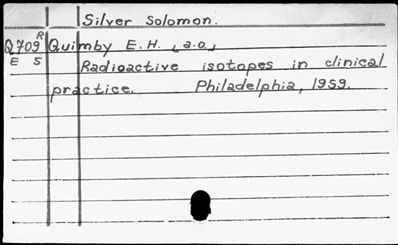 Silver Solomon.
R
Q709 Quimby E.H. [a.o.]
E S Radioactive isotopes in clinical
practice. Philadelphia, 1959.